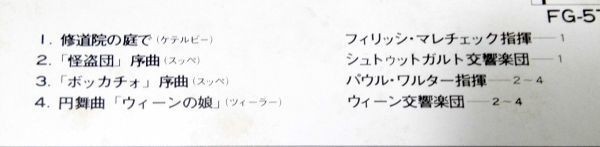 FG-5
1. 修道院の庭で(ケテルビー)
2.「怪盗団」序曲(スッペ)
3.「ボッカチォ」序曲(スッペ)
4. 円舞曲「ウィーンの娘」(ツィーラー)
フィリッシ・マレチェック指揮—1
シュトゥットガルト交響楽団—1
パウル・ワルター指揮—2~4
ウィーン交響楽団—2~4